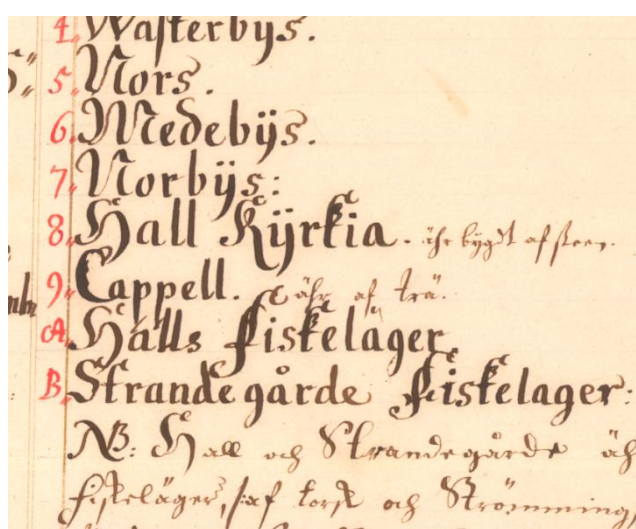 4. Wasterbÿs.
5. Nors.
6. Medebÿs.
7. Norbÿs:
8. Hall Kÿrkia. ähr bygdt af steen.
9. Cappell. ähr af trä.
A. Halls fiskelager.
B. Strandegårde fiskelager:
NB: Hall och Strandegårde äh
fiskeläger, /:af torsk och Strömming,